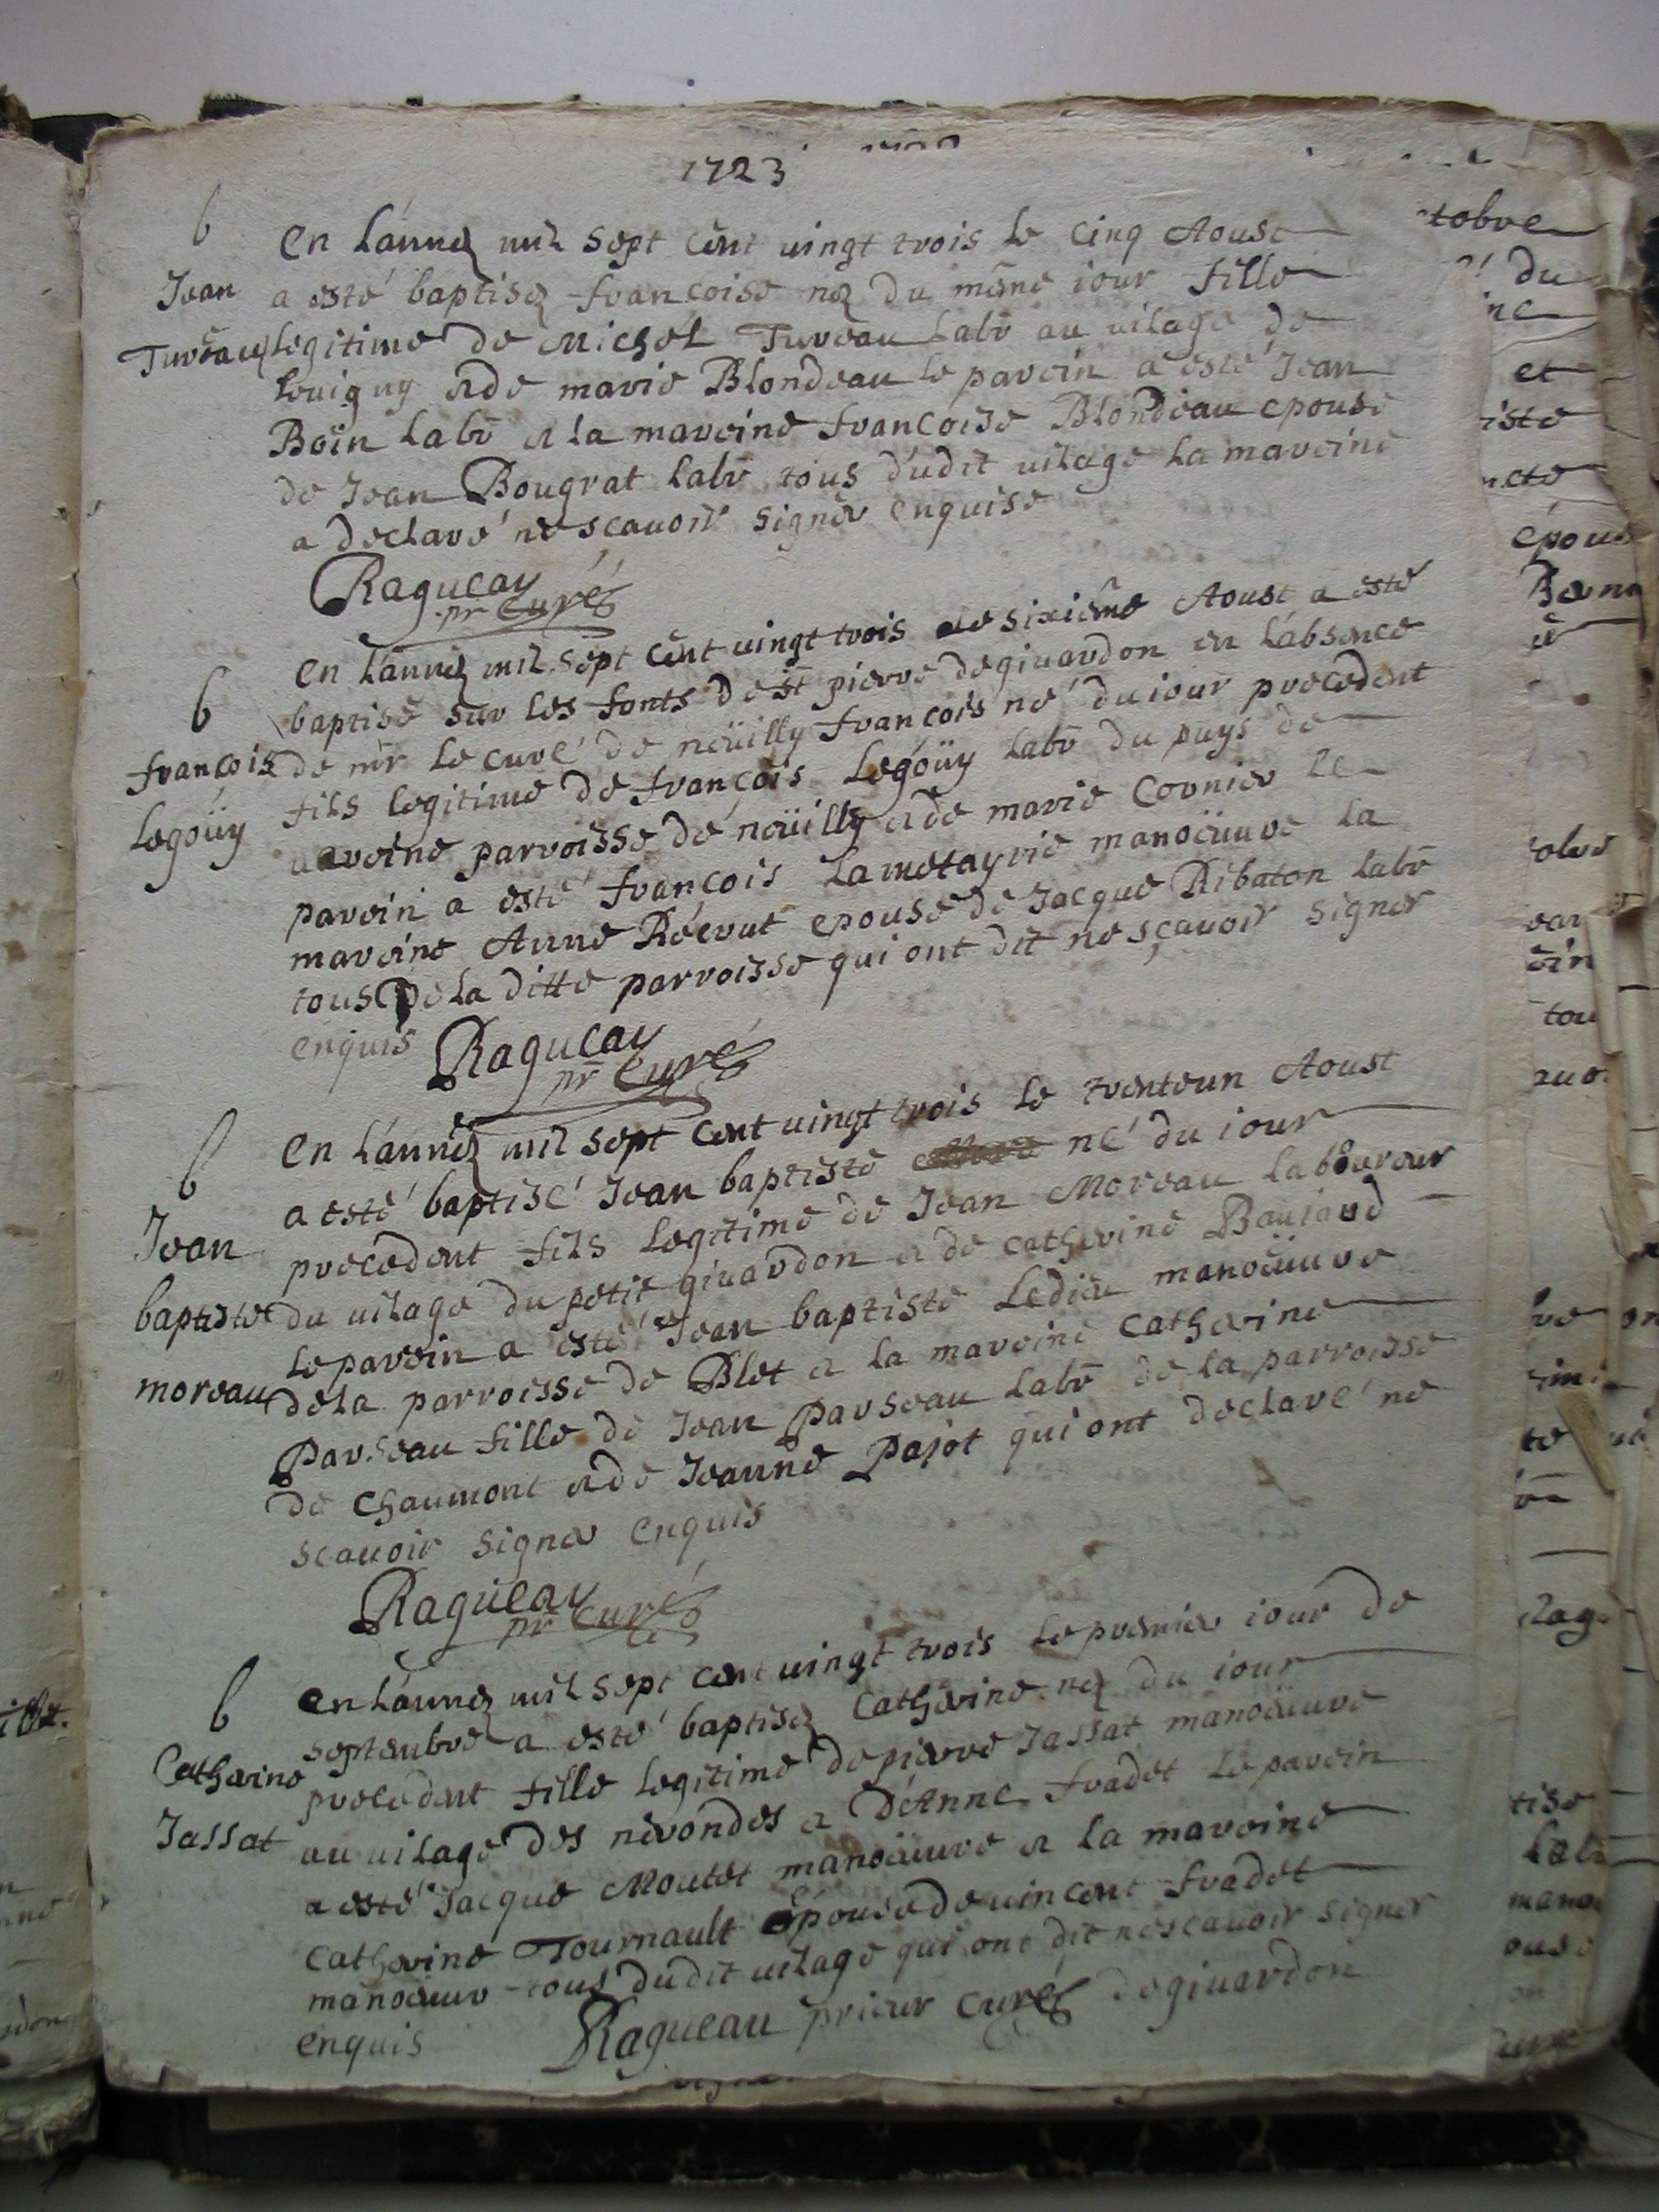 1723
b
Jean
Tureau
En L'année mil sept cent vingt trois le cinq Aoust
a esté baptisée françoise née du même iour fille
legitime de Michel Tureau Labr au vilage de
leuigny et de marie Blondeau le parein a esté Jean
Boin Labr et la mareine francoise Blondeau epouse
de Jean Bougrat Labr tous dudit vilage La mareine
a declaré ne scauoir signer enquise
Ragueau
pr Curé
b
françois
Legoüy
en L'année mil sept cent vingt trois le sixiême Aoust a esté
baptisé sur les fonts de st pierre de giuardon en L'absence
de mr le curé de neüilly françois né du iour precedent
fils legitime de françois Legoüy Labr du puys de
uaroine parroisse de neüilly et de marie Cornier le
parein a esté françois Lametayrie manoeuure la
mareine Anne epouse de Jacque Ribaton Labr
tous de la ditte parroisse qui ont dit ne sçauoir signer
enquis
Ragueau
pr Curé
b
Jean
baptiste
moreau
En L'année mil sept cent uingt trois le trenteun Aoust
a esté baptisé Jean baptiste né du iour
precedent fils legitime de Jean Moreau laboureur
du uilage du petit giuardon et de catherine Baujard
le parein a esté Jean baptiste Ledieu manoeuure
de la parroisse de Blet et la mareine Catherine
Parseau fille de Jean Parseau Labr de la parroisse
de Chaumont et de Jeanne Pajot qui ont declaré ne
scauoir signer enquis
Ragueau
pr Curé
b
Catherine
Jassat
en L'année mil sept cent uingt trois le premier iour de
septembre a esté baptisée Catherine née du iour
precedent fille legitime de pierre Jassat manoeuure
au uilage des nerondes et D'Anne fradet le parein
a esté Jacque Moutet manoeuure et la mareine
Catherine Tournault épouse de uincent fradet
manoeuur tous dudit uilage qui ont dit ne scauoir signer
enquis
Ragueau prieur curé de giuardon
tobre
du
ne
et
iste
épous
tou
tise
Lab